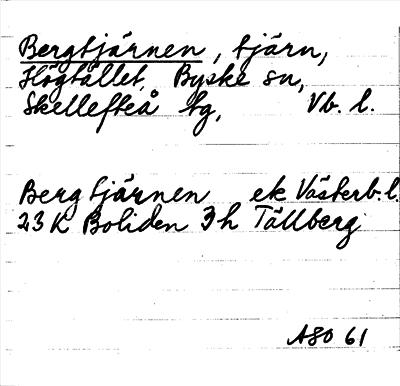 Bergtjärnen, tjärn,
Högfället, Byske sn,
Skellefteå tg, Vb. l.
Bergtjärnen ek Västerb. l.
23 K Boliden 3 h Tällberg
ASO 61